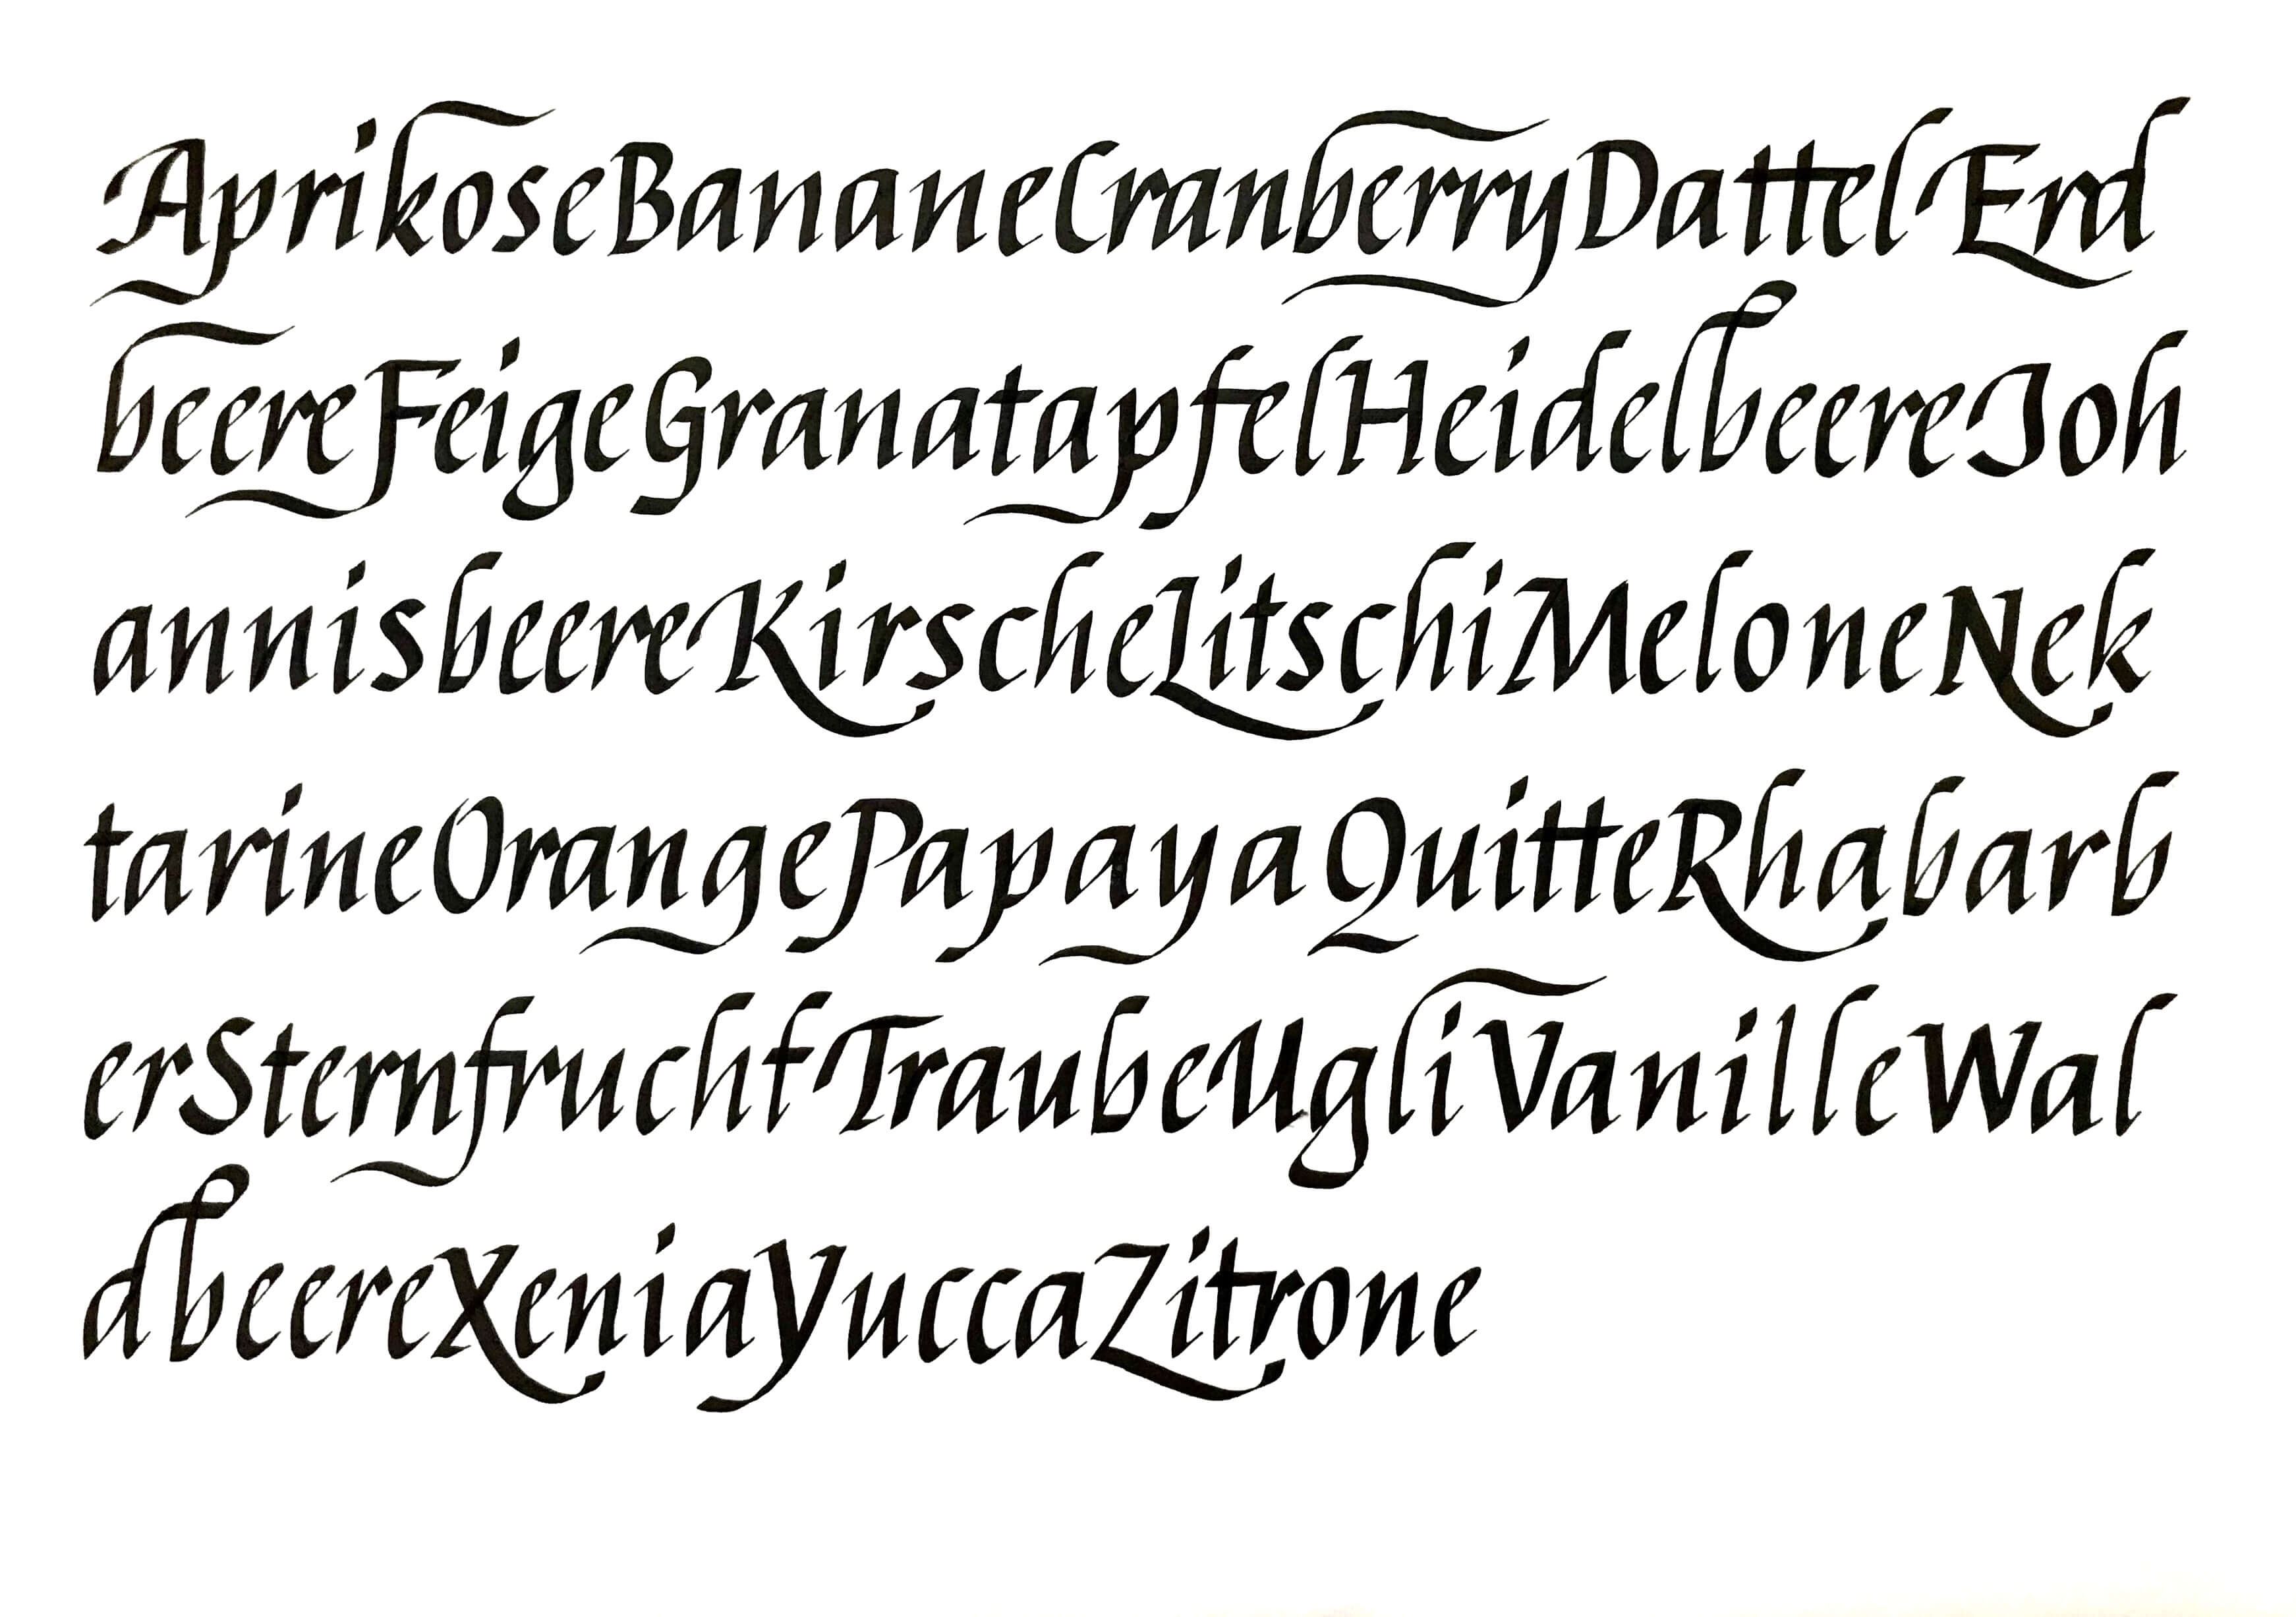 AprikoseBananeCranberryDattelErd
beereFeigeGranatapfelHeidelbeereJoh
annisbeereKirscheLitschiMeloneNek
tarineOrangePapayaQuitteRhabarb
erSternfruchtTraubeUgliVanilleWal
dbeereXeniaYuccaZitrone